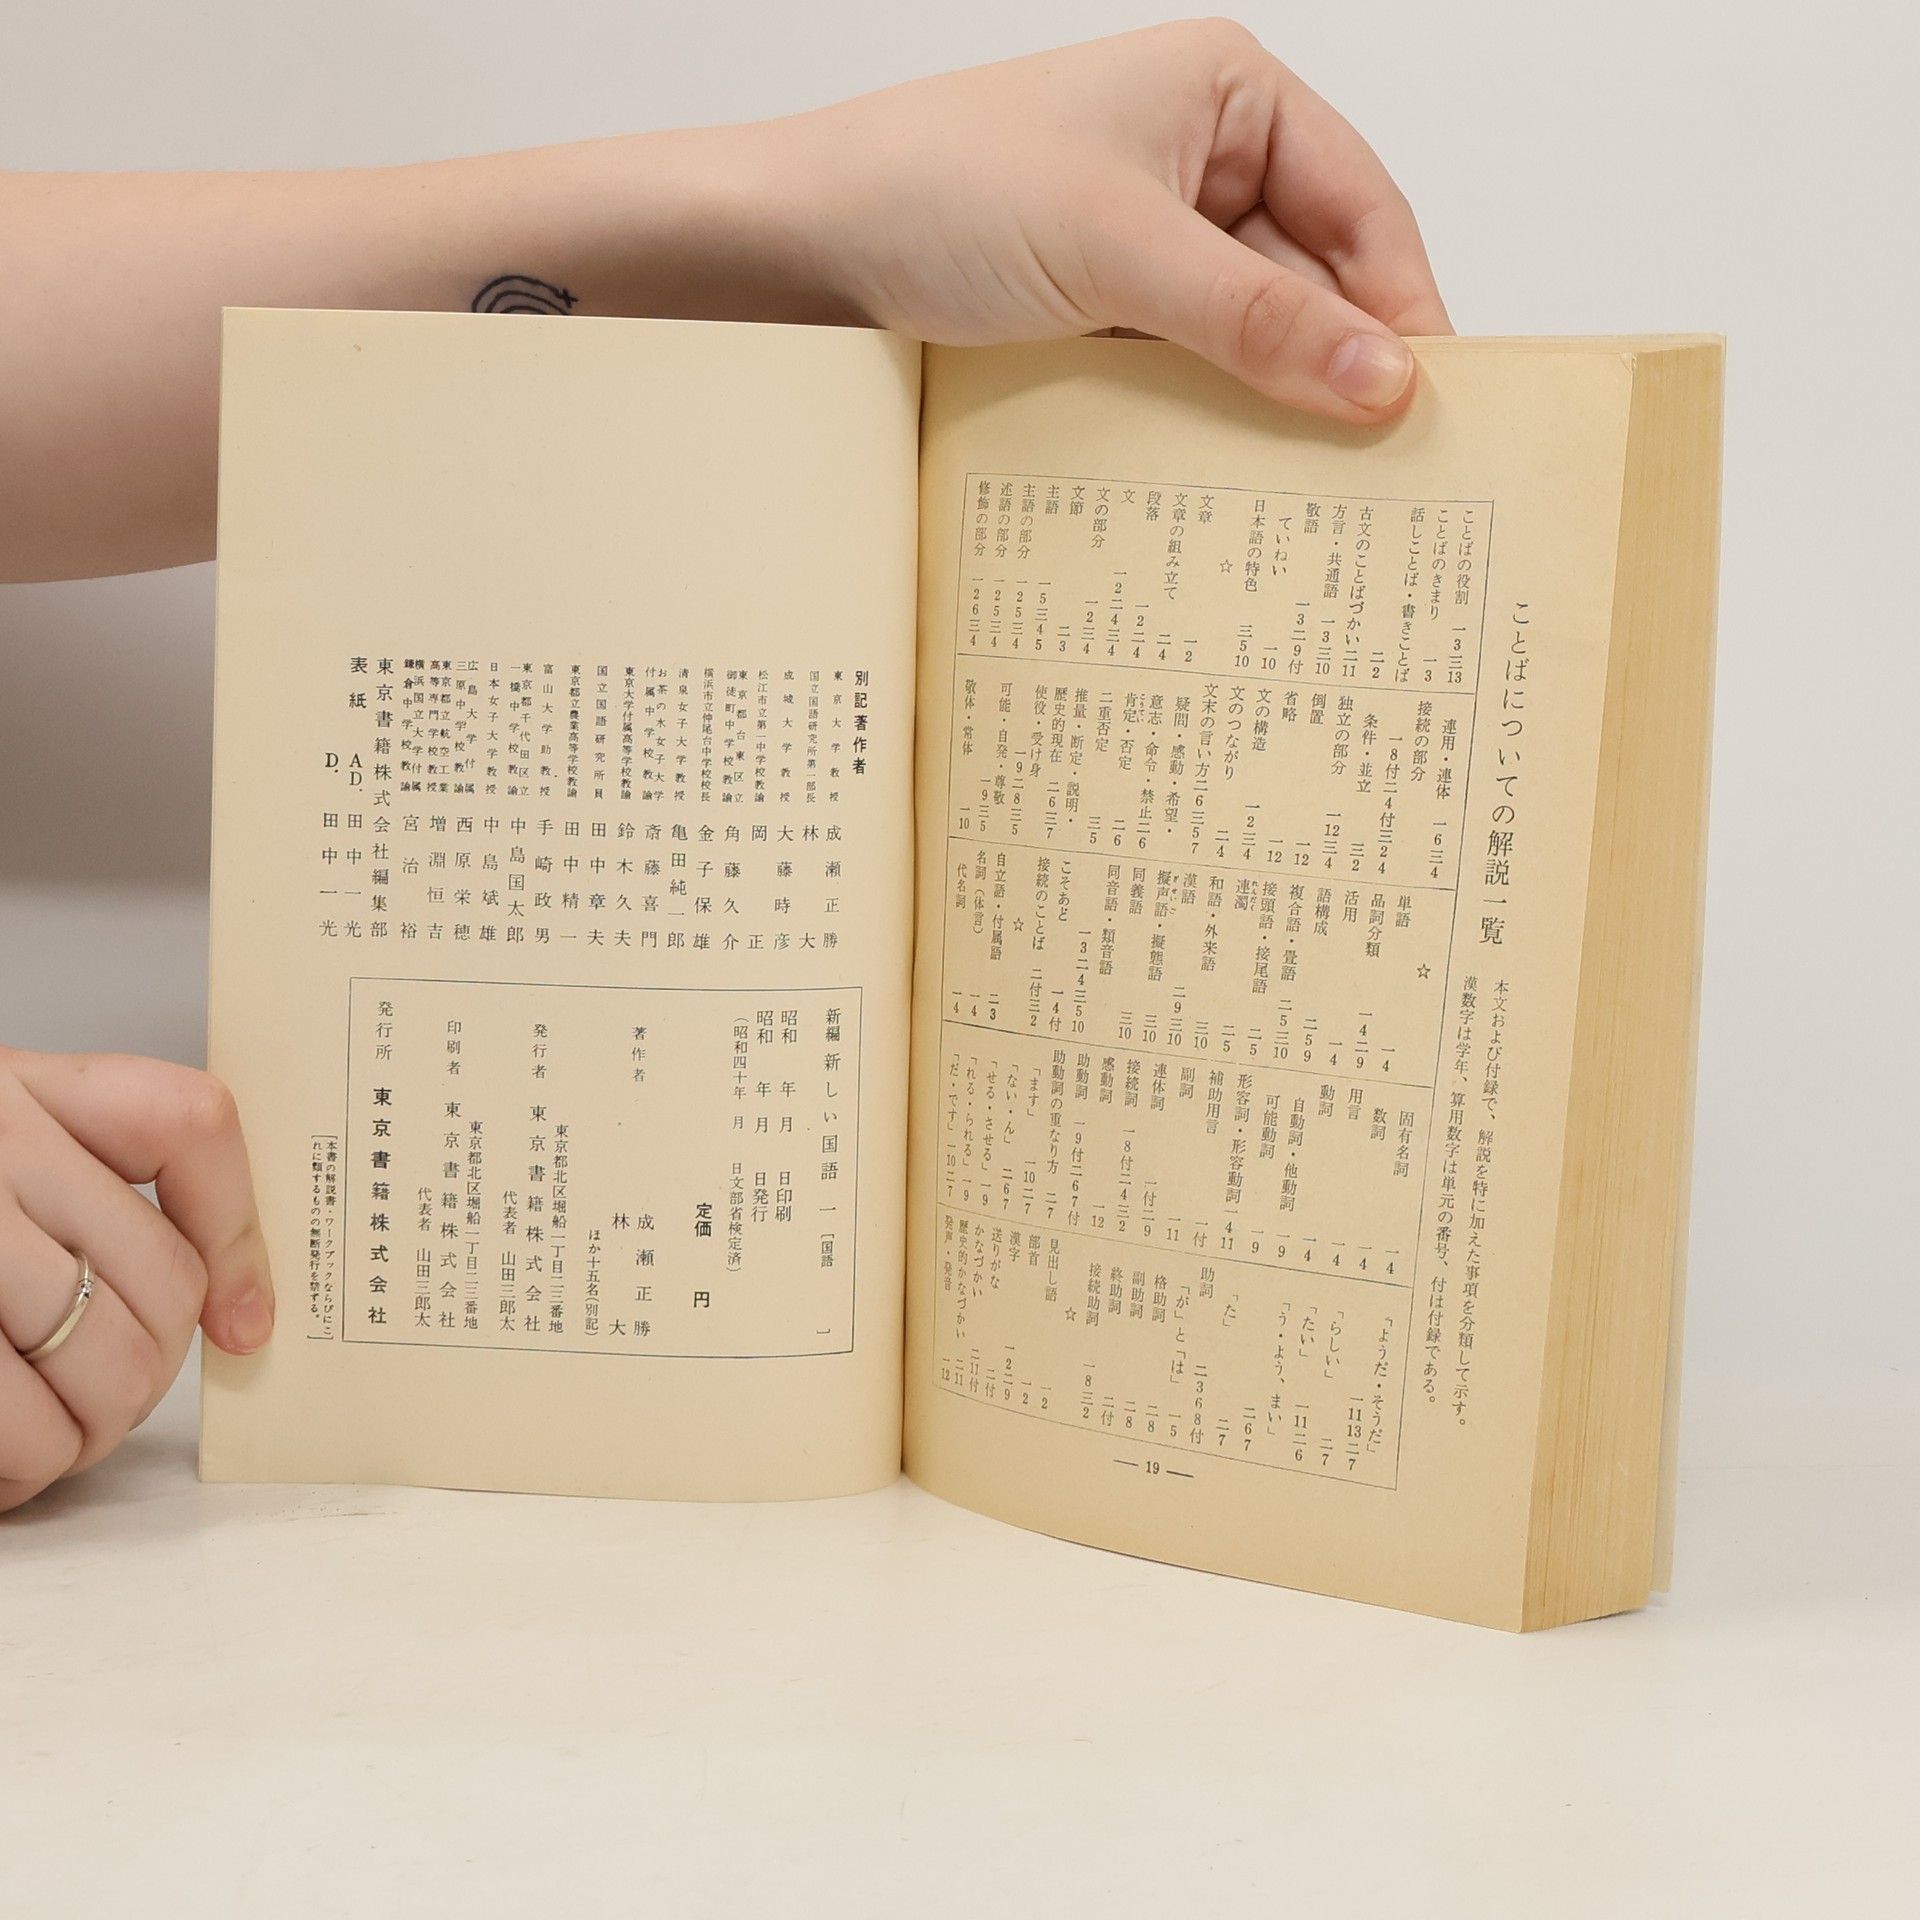 ことばについての解説一覧
本文および付録で、解説を特に加えた事項を分類して示す。
漢数字は学年、算用数字は単元の番号、付は付録である。
ことばの役割 一3三13
ことばのきまり
話しことば・書きことば 一3
古文のことばづかい 二11
方言・共通語 一3三10
敬語
ていねい 一3二9付
日本語の特色 三5 10
☆
文章 一2
文章の組み立て 二4
段落 一2二4
文
文の部分 一2二4三4
文節 一2三4
主語 二3
主語の部分 一5三4 5
述語の部分 一2 5三4
修飾の部分 一2 6三4
連用・連体 一6三4
接続の部分
条件・並立 三2
独立の部分 一12三4
倒置 一12
省略 一12
文の構造 一2三4
文のつながり 二4
文末の言い方 二6三5 7
疑問・感動・希望・
意志・命令・禁止 二6
肯定・否定 二6
二重否定 三5
推量・断定・説明・
歴史的現在 二6三7
使役・受け身
可能・自発・尊敬 一9三5
敬体・常体 一10
☆
単語 一4
品詞分類 一4二9
活用 一4
語構成 二5 9
複合語・畳語 二5三10
接頭語・接尾語 二5
連濁 二5
和語・外来語 三10
漢語 二9三10
擬声語・擬態語 三10
同義語 三10
同音語・類音語
こそあど 一3二4三5 10
接続のことば 二付三2
☆
自立語・付属語 二3
名詞(体言) 一4
代名詞 一4
固有名詞 一4
数詞 一4
用言 一4
動詞 一4
自動詞・他動詞 一9
可能動詞 一9
形容詞・形容動詞 一4 11
補助用言 一付
副詞 一11
連体詞 一付二9
接続詞 一8付二4三2
感動詞 一12
助動詞 一9付二6 7付
助動詞の重なり方 二7
「ます」 一10二7
「ない・ん」 二6 7
「せる・させる」 一9
「れる・られる」 一9
「だ・です」 一10二7
「ようだ・そうだ」 一11 13二7
「らしい」 二7
「たい」 一11二6
「う・よう、まい」 二6 7
「た」 二7
助詞 二3 6 8付
「が」と「は」 一5
格助詞 二8
副助詞 二8
終助詞 二付
接続助詞 一8三2
☆
見出し語 一2
部首 一2
漢字 一2二9
送りがな 二付
かなづかい 二11付
歴史的かなづかい 二11
発声・発音 一12
— 19 —
別記著作者
東京大学教授 成瀬正勝
国立国語研究所第一部長 林大
成城大学教授 大藤時彦
松江市立第一中学校教諭 岡正
東京都台東区立御徒町中学校教諭 角藤久介
横浜市立仲尾台中学校校長 金子保雄
清泉女子大学教授 亀田純一郎
お茶の水女子大学付属中学校教諭 斎藤喜門
東京大学付属高等学校教諭 鈴木久夫
国立国語研究所所員 田中章夫
東京都立農業高等学校教諭 田中精一
富山大学助教授 手崎政男
東京都千代田区立一橋中学校教諭 中島国太郎
日本女子大学教授 中島斌雄
広島大学付属三原中学校教諭 西原栄穂
東京都立航空工業高等専門学校教授 増淵恒吉
横浜国立大学付属鎌倉中学校教諭 宮治裕
東京書籍株式会社編集部
表紙 AD. 田中一光
D. 田中一光
新編 新しい国語 一 [国語 ]
昭和 年 月 日印刷
昭和 年 月 日発行
(昭和四十年 月 日文部省検定済)
定価 円
著作者 成瀬正勝
林大
ほか十五名(別記)
東京都北区堀船一丁目二三番地
発行者 東京書籍株式会社
代表者 山田三郎太
東京都北区堀船一丁目二三番地
印刷者 東京書籍株式会社
代表者 山田三郎太
発行所 東京書籍株式会社
[本書の解説書・ワークブックならびにこ
れに類するものの無断発行を禁ずる。]